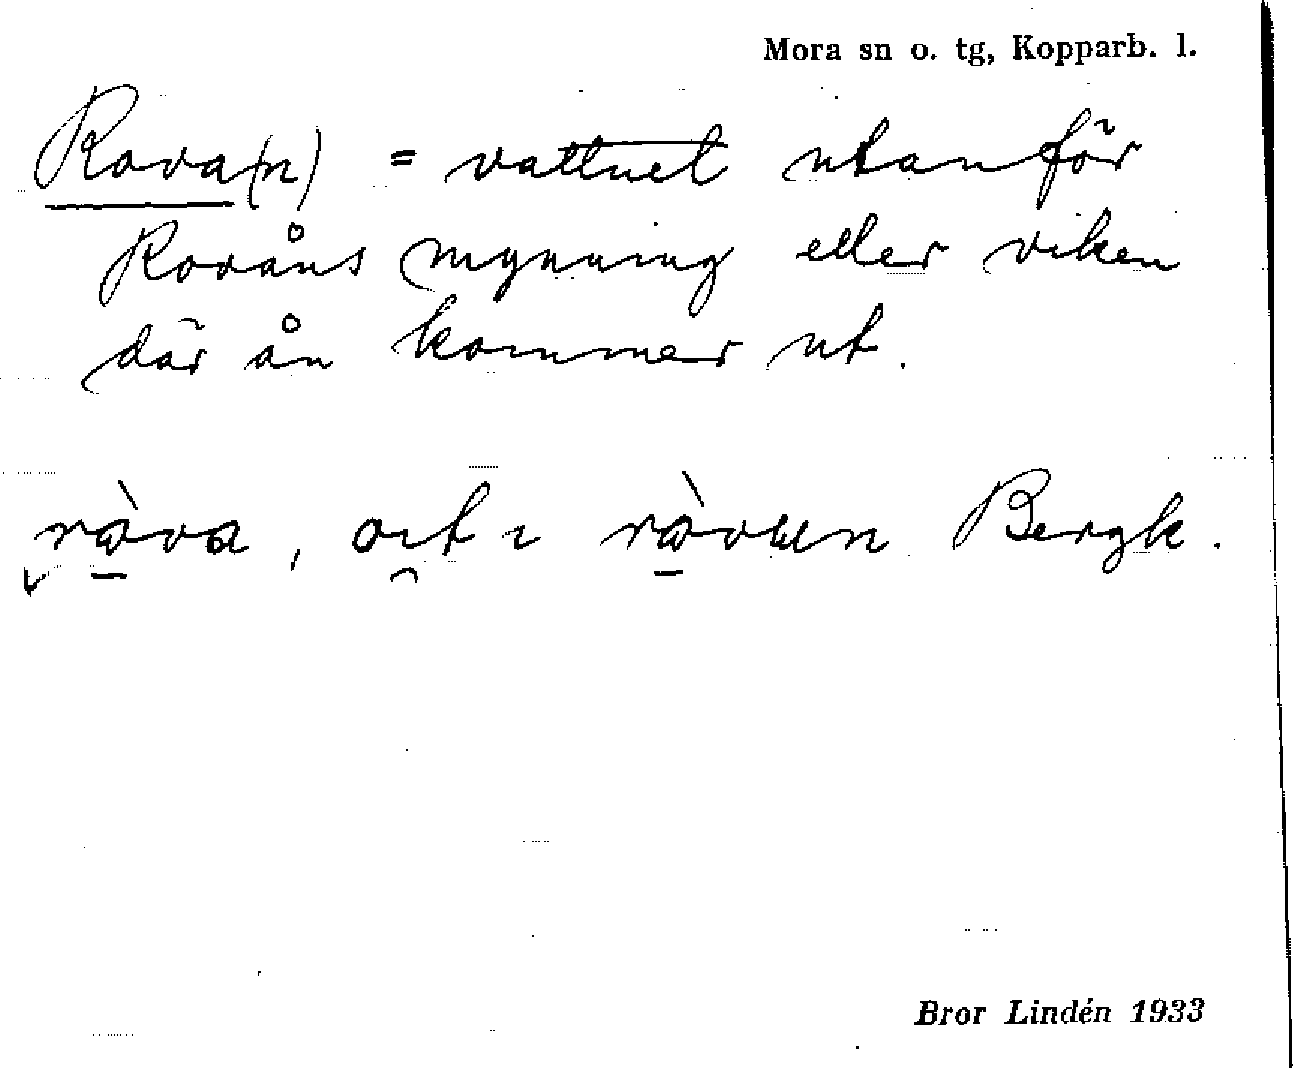 Mora sn o. tg, Kopparb. l.
Rova(n) = vattnet utanför
Rovåns mynning eller viken
där ån kommer ut.
ròva, oit i ròvun Bergk.
Bror Lindén 1933